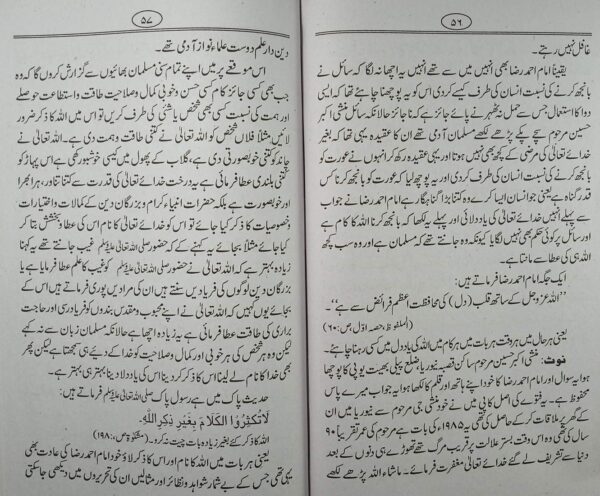 ۵۶
غافل نہیں رہتے۔
یقیناً امام احمد رضا بھی انہیں میں سے تھے انہیں یہ اچھا نہ لگا کہ سائل نے
بانجھ کرنے کی نسبت انسان کی طرف کیسے کردی اس کو یہ پوچھنا چاہئے تھا کہ ایسی
دوا کا استعمال جس سے حمل نہ ٹھہرنے پائے جائز ہے کہ ناجائز حالانکہ سائل منشی اکبر
حسین مرحوم سچے پکے پڑھے لکھے مسلمان آدمی تھے ان کا عقیدہ یہی تھا کہ بغیر
خدائے تعالیٰ کی مرضی کے کچھ بھی نہیں ہوتا اور یہی عقیدہ رکھ کر انہوں نے عورت کو
بانجھ کرنے کی نسبت انسان کی طرف کردی اور یہ پوچھ لیا کہ عورت کو بانجھ کرنا کس
قدر گناہ ہے یعنی جو انسان ایسا کرے وہ کتنا بڑا گناہگار ہے امام احمد رضا نے جواب
سے پہلے انہیں خدائے تعالیٰ کی یاد دلائی اور پہلے یہ لکھا کہ بانجھ کرنا اللہ کا کام ہے
اور سائل پر کوئی حکم بھی نہیں لگایا کیونکہ وہ جانتے تھے کہ مسلمان ہے اور وہ سب کچھ
اللہ ہی کی عطا سے مانتا ہے۔
ایک جگہ امام احمد رضا فرماتے ہیں:
”اللہ عزوجل کے ساتھ قلب (دل) کی محافظت اعظم فرائض سے ہے“۔
(الملفوظ، حصہ اوّل، ص:۶۰)
یعنی ہر حال میں ہر وقت ہر بات میں ہر کام میں اللہ کی یاد دل میں کسی رہنا چاہئے۔
نوٹ: منشی اکبر حسین مرحوم ساکن قصبہ نیوریا، ضلع پیلی بھیت یوپی کا پوچھا
ہوا یہ سوال اور امام احمد رضا کا خود اپنے ہاتھ اور قلم کا لکھا ہوا یہ جواب میرے پاس
محفوظ ہے۔ یہ فتوے کی اصل کاپی میں نے خود منشی جی مرحوم سے نیوریا میں ان
کے گھر پر ملاقات کرکے حاصل کی تھی یہ ۱۹۸۵ء کی بات ہے مرحوم کی عمر تقریباً ۹۰
سال کی تھی وہ اس وقت بستر علالت پر قریب مرگ تھے تھوڑے ہی دنوں کے بعد
دنیا سے تشریف لے گئے خدائے تعالیٰ مغفرت فرمائے۔ ماشاء اللہ پڑھے لکھے
۵۷
دین دار علم دوست علماء نواز آدمی تھے۔
اس موقعے پر میں اپنے تمام سنی مسلمان بھائیوں سے گزارش کروں گا کہ وہ
جب بھی کسی جائز کام کسی حسن و خوبی کمال و صلاحیت طاقت و استطاعت حوصلے
اور ہمت کی نسبت کسی بھی شخص یا شئی کی طرف کریں تو اس میں اللہ کا ذکر ضرور
لائیں مثلاً فلاں شخص کو اللہ تعالیٰ نے کتنی طاقت و ہمت دی ہے۔ اللہ تعالیٰ نے
چاند کو کتنی خوبصورتی دی ہے، گلاب کے پھول میں کیسی خوشبو رکھی ہے اس پہاڑ کو
کتنی بلندی عطا فرمائی ہے یہ درخت خدائے تعالیٰ کی قدرت سے کتنا تناور، ہرا بھرا
اور خوبصورت ہے بلکہ حضرات انبیاء کرام و بزرگان دین کے کمالات و اختیارات
و خصوصیات کا ذکر کیا جائے تو اس کو خدائے تعالیٰ کا نام اس کی عطا و بخشش بتا کر
کیا جائے مثلاً بجائے یہ کہنے کے کہ حضور صلی اللہ تعالیٰ علیہ وسلم غیب جانتے تھے یہ کہنا
زیادہ بہتر ہے کہ اللہ تعالیٰ نے حضور صلی اللہ تعالیٰ علیہ وسلم کو غیب کا علم عطا فرمایا ہے یا
بزرگان دین لوگوں کی فریادیں سنتے ہیں ان کی مرادیں پوری فرماتے ہیں اس کے
بجائے یوں کہیں کہ اللہ تعالیٰ نے اپنے محبوب و مقدس بندوں کو فریاد رسی اور حاجت
براری کی طاقت عطا فرمائی ہے یہ زیادہ اچھا ہے حالانکہ مسلمان زبان سے نہ کہے
لیکن وہ ہر شخص کی ہر خوبی اور کمال و صلاحیت کو خدا کے دیئے ہی سمجھتا ہے لیکن پھر
بھی خدا کا نام لے لینا اس کا ذکر کردینا اس کی یاد دلا دینا بہتر ہی بہتر ہے۔
حدیث پاک میں ہے رسول پاک صلی اللہ تعالیٰ علیہ وسلم فرماتے ہیں:
لَا تُکْثِرُوا الْکَلَامَ بِغَیْرِ ذِکْرِ اللّٰہِ۔
اللہ کا ذکر کئے بغیر زیادہ بات چیت نہ کرو۔ (مشکوٰۃ ص:۱۹۸)
یعنی ہر بات میں اللہ کا نام اور اس کا ذکر لاؤ خود امام احمد رضا کی عادت بھی
یہی تھی جس کے بے شمار شواہد و نظائر اور مثالیں ان کی تحریروں میں دیکھی جاسکتی